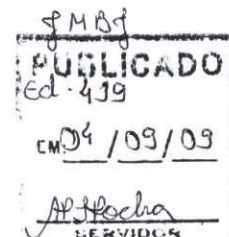 PUBLICADO
Ed. 439
EM 04 / 09 / 09
SERVIDOR